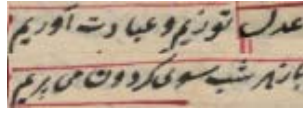 عدل تو زیم و عبادت آوریم
باز هر شب سوی گردون می بریم